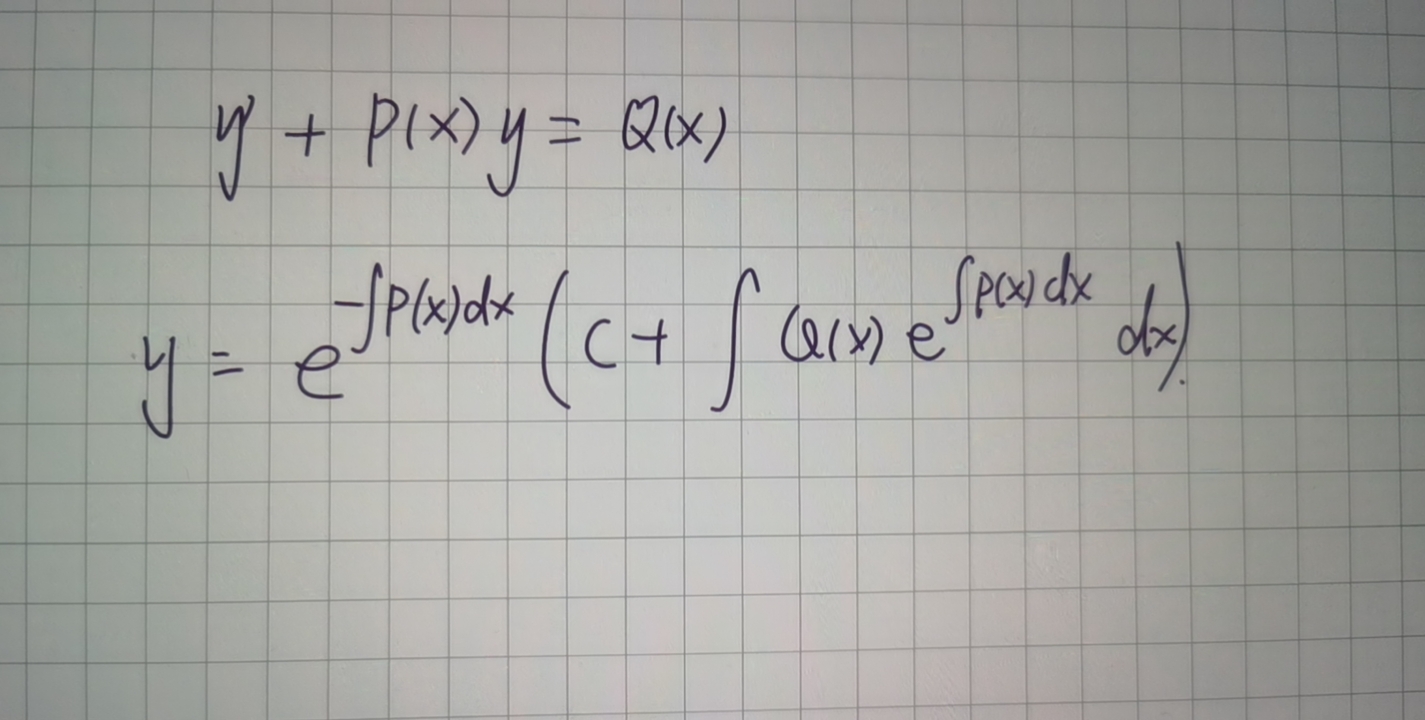 y' + P(x) y = Q(x)
y = e^{-∫P(x)dx} (C + ∫ Q(x) e^{∫P(x)dx} dx).